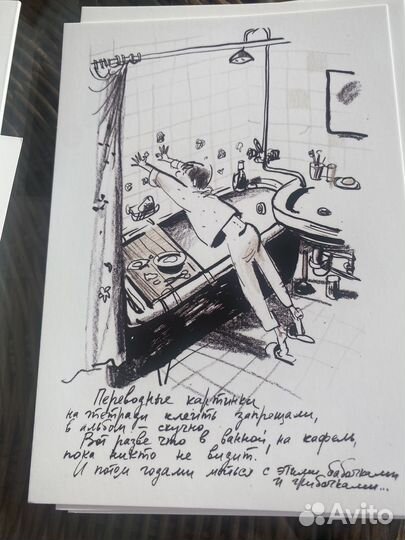 Переводные картинки
на тетради клеить запрещали,
в альбом – скучно,
Вот разве что в ванной, на кафель,
пока никто не видит.
И потом годами мыться с этими бабочками
и грибочками...
Avito